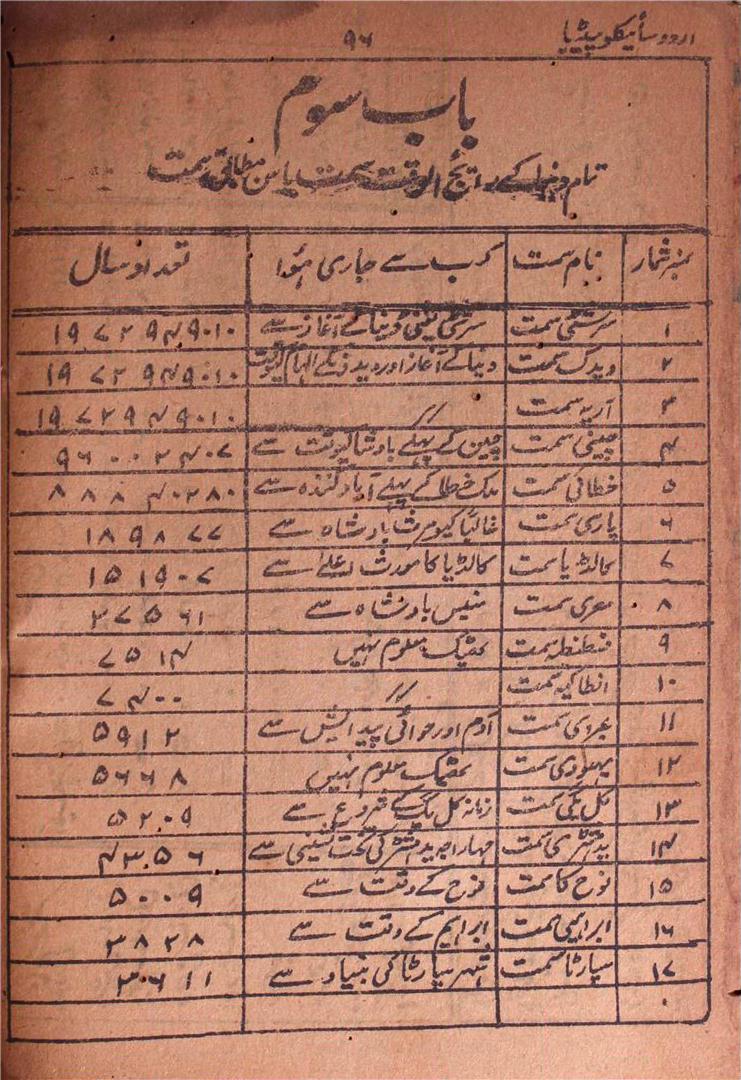 اردو سائیکلوپیڈیا ۹۶
باب سوم
تمام دنیا کے رائج الوقت سمت یا سن مطابق سمت
نمبر شمار نام سمت کب سے جاری ہؤا تعداد سال
۱ سرشٹی سمت سرشٹی یعنی دنیا کے آغاز سے ۱۹۷۲۹۴۹۰۱۰
۲ ویدک سمت دنیا کے آغاز اور ویدوں کے الہام کیوقت ۱۹۷۲۹۴۹۰۱۰
۳ آریہ سمت // ۱۹۷۲۹۴۹۰۱۰
۴ چینی سمت چین کے پہلے بادشاہ کیوقت سے ۹۶۰۰۲۴۰۷
۵ خطائی سمت ملک خطا کے پہلے آباد کنندہ سے ۸۸۸۴۰۲۸۰
۶ پارسی سمت غالباً کیومرث بادشاہ سے ۱۸۹۸۷۷
۷ کالڈیا سمت کالڈیا کا مورث اعلےٰ سے ۱۵۱۹۰۷
۸ مصری سمت منیس بادشاہ سے ۲۷۵۶۱
۹ قسطنطنیہ سمت ٹھیک معلوم نہیں ۷۵۱۴
۱۰ انطاکیہ سمت // ۷۴۰۰
۱۱ عبروی سمت آدم اور حوا کی پیدائش سے ۵۹۱۲
۱۲ یہودی سمت ٹھیک معلوم نہیں ۵۶۶۸
۱۳ کل یگی سمت زمانہ کل یگ کے شروع سے ۵۲۰۹
۱۴ یدہشٹری سمت مہاراجہ یدہشٹر کی تخت نشینی سے ۴۳۵۶
۱۵ نوح کا سمت نوح کے وقت سے ۵۰۰۹
۱۶ ابراہیمی سمت ابراہیم کے وقت سے ۳۸۲۸
۱۷ سپارٹا سمت شہر سپارٹا کی بنیاد سے ۳۰۶۱۱